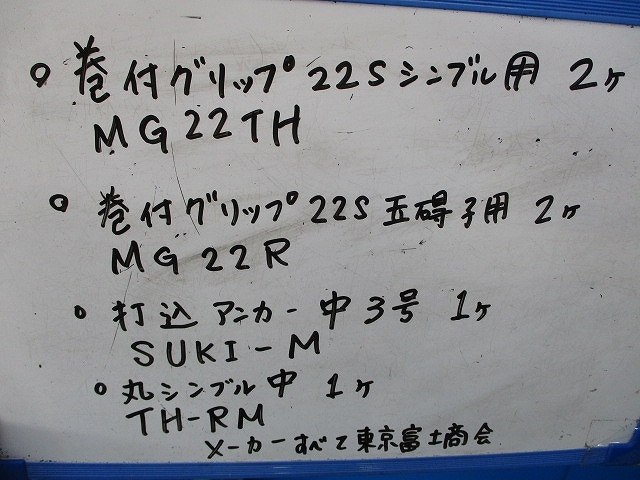 ○ 巻付グリップ 22S シンブル用 2ケ
MG22TH
○ 巻付グリップ 22S 玉碍子用 2ケ
MG 22R
○ 打込アンカー 中3号 1ケ
SUKI-M
○ 丸シンブル 中 1ケ
TH-RM
メーカーすべて東京富士商会